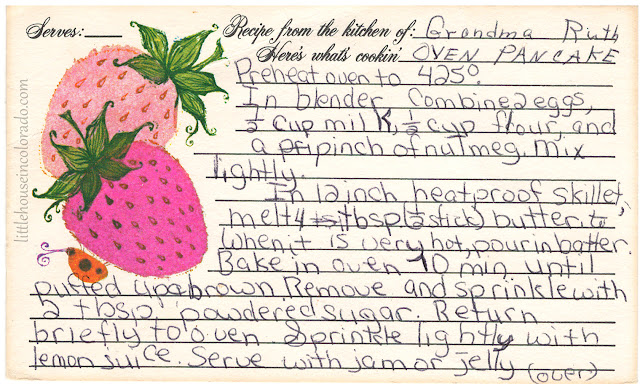 Serves:
Recipe from the kitchen of: Grandma Ruth
Here's what's cookin' OVEN PANCAKE
Preheat oven to 425°.
In blender combine 2 eggs,
1/2 cup milk, 1/2 cup flour, and
a pinch of nutmeg. Mix
lightly.
In 12 inch heatproof skillet,
melt 4 tbsp (1/2 stick) butter
when it is very hot, pour in batter.
Bake in oven 10 min until
puffed up & brown Remove and sprinkle with
2 tbsp powdered sugar. Return
briefly to oven Sprinkle lightly with
lemon juice. Serve with jam or jelly
(over)
littlehouseincolorado.com